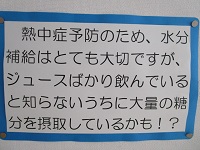 熱中症予防のため、水分
補給はとても大切ですが、
ジュースばかり飲んでいる
と知らないうちに大量の糖
分を摂取しているかも!?